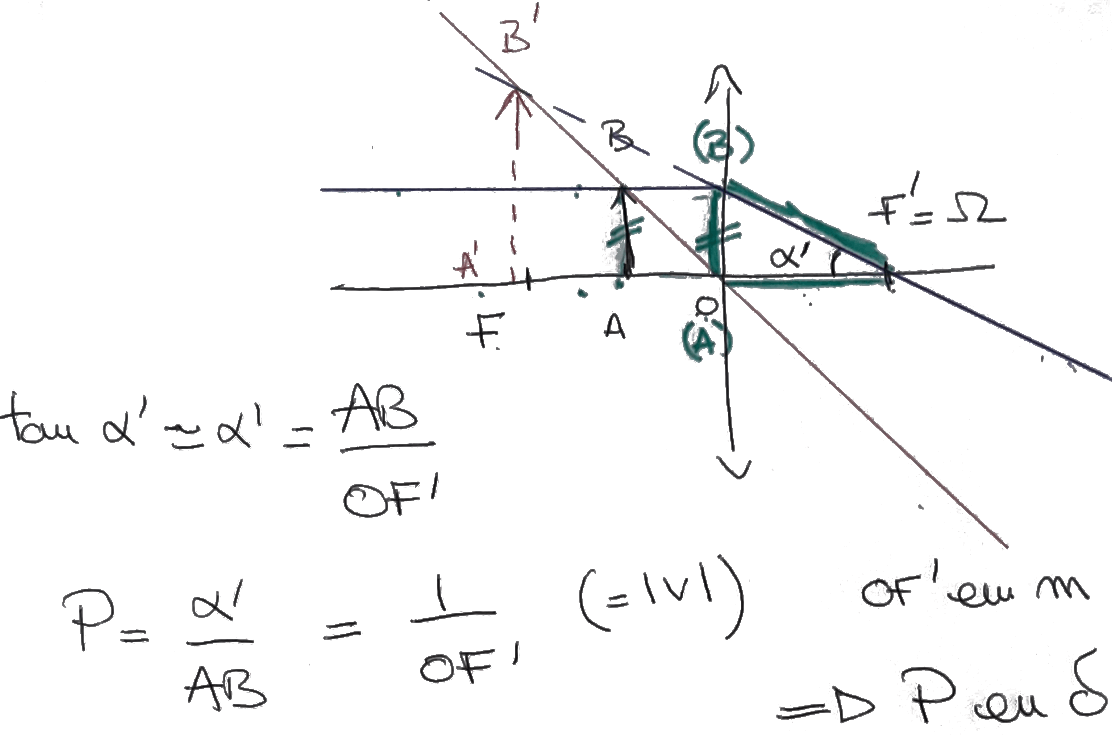 B'
B
(B)
F' = Ω
α'
A'
F
A
O
(A)
tan α' ≃ α' = AB / OF'
P = α' / AB = 1 / OF' (= |V|) OF' en m
=> P en δ